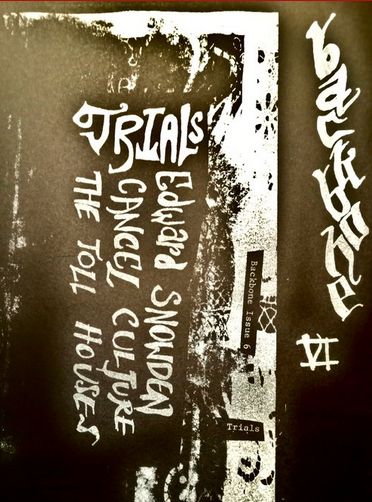 backbone
TRIALS
Edward SNOWDEN
CANCEL CULTURE
THE TOLL HOUSES
Backbone Issue 6
Trials